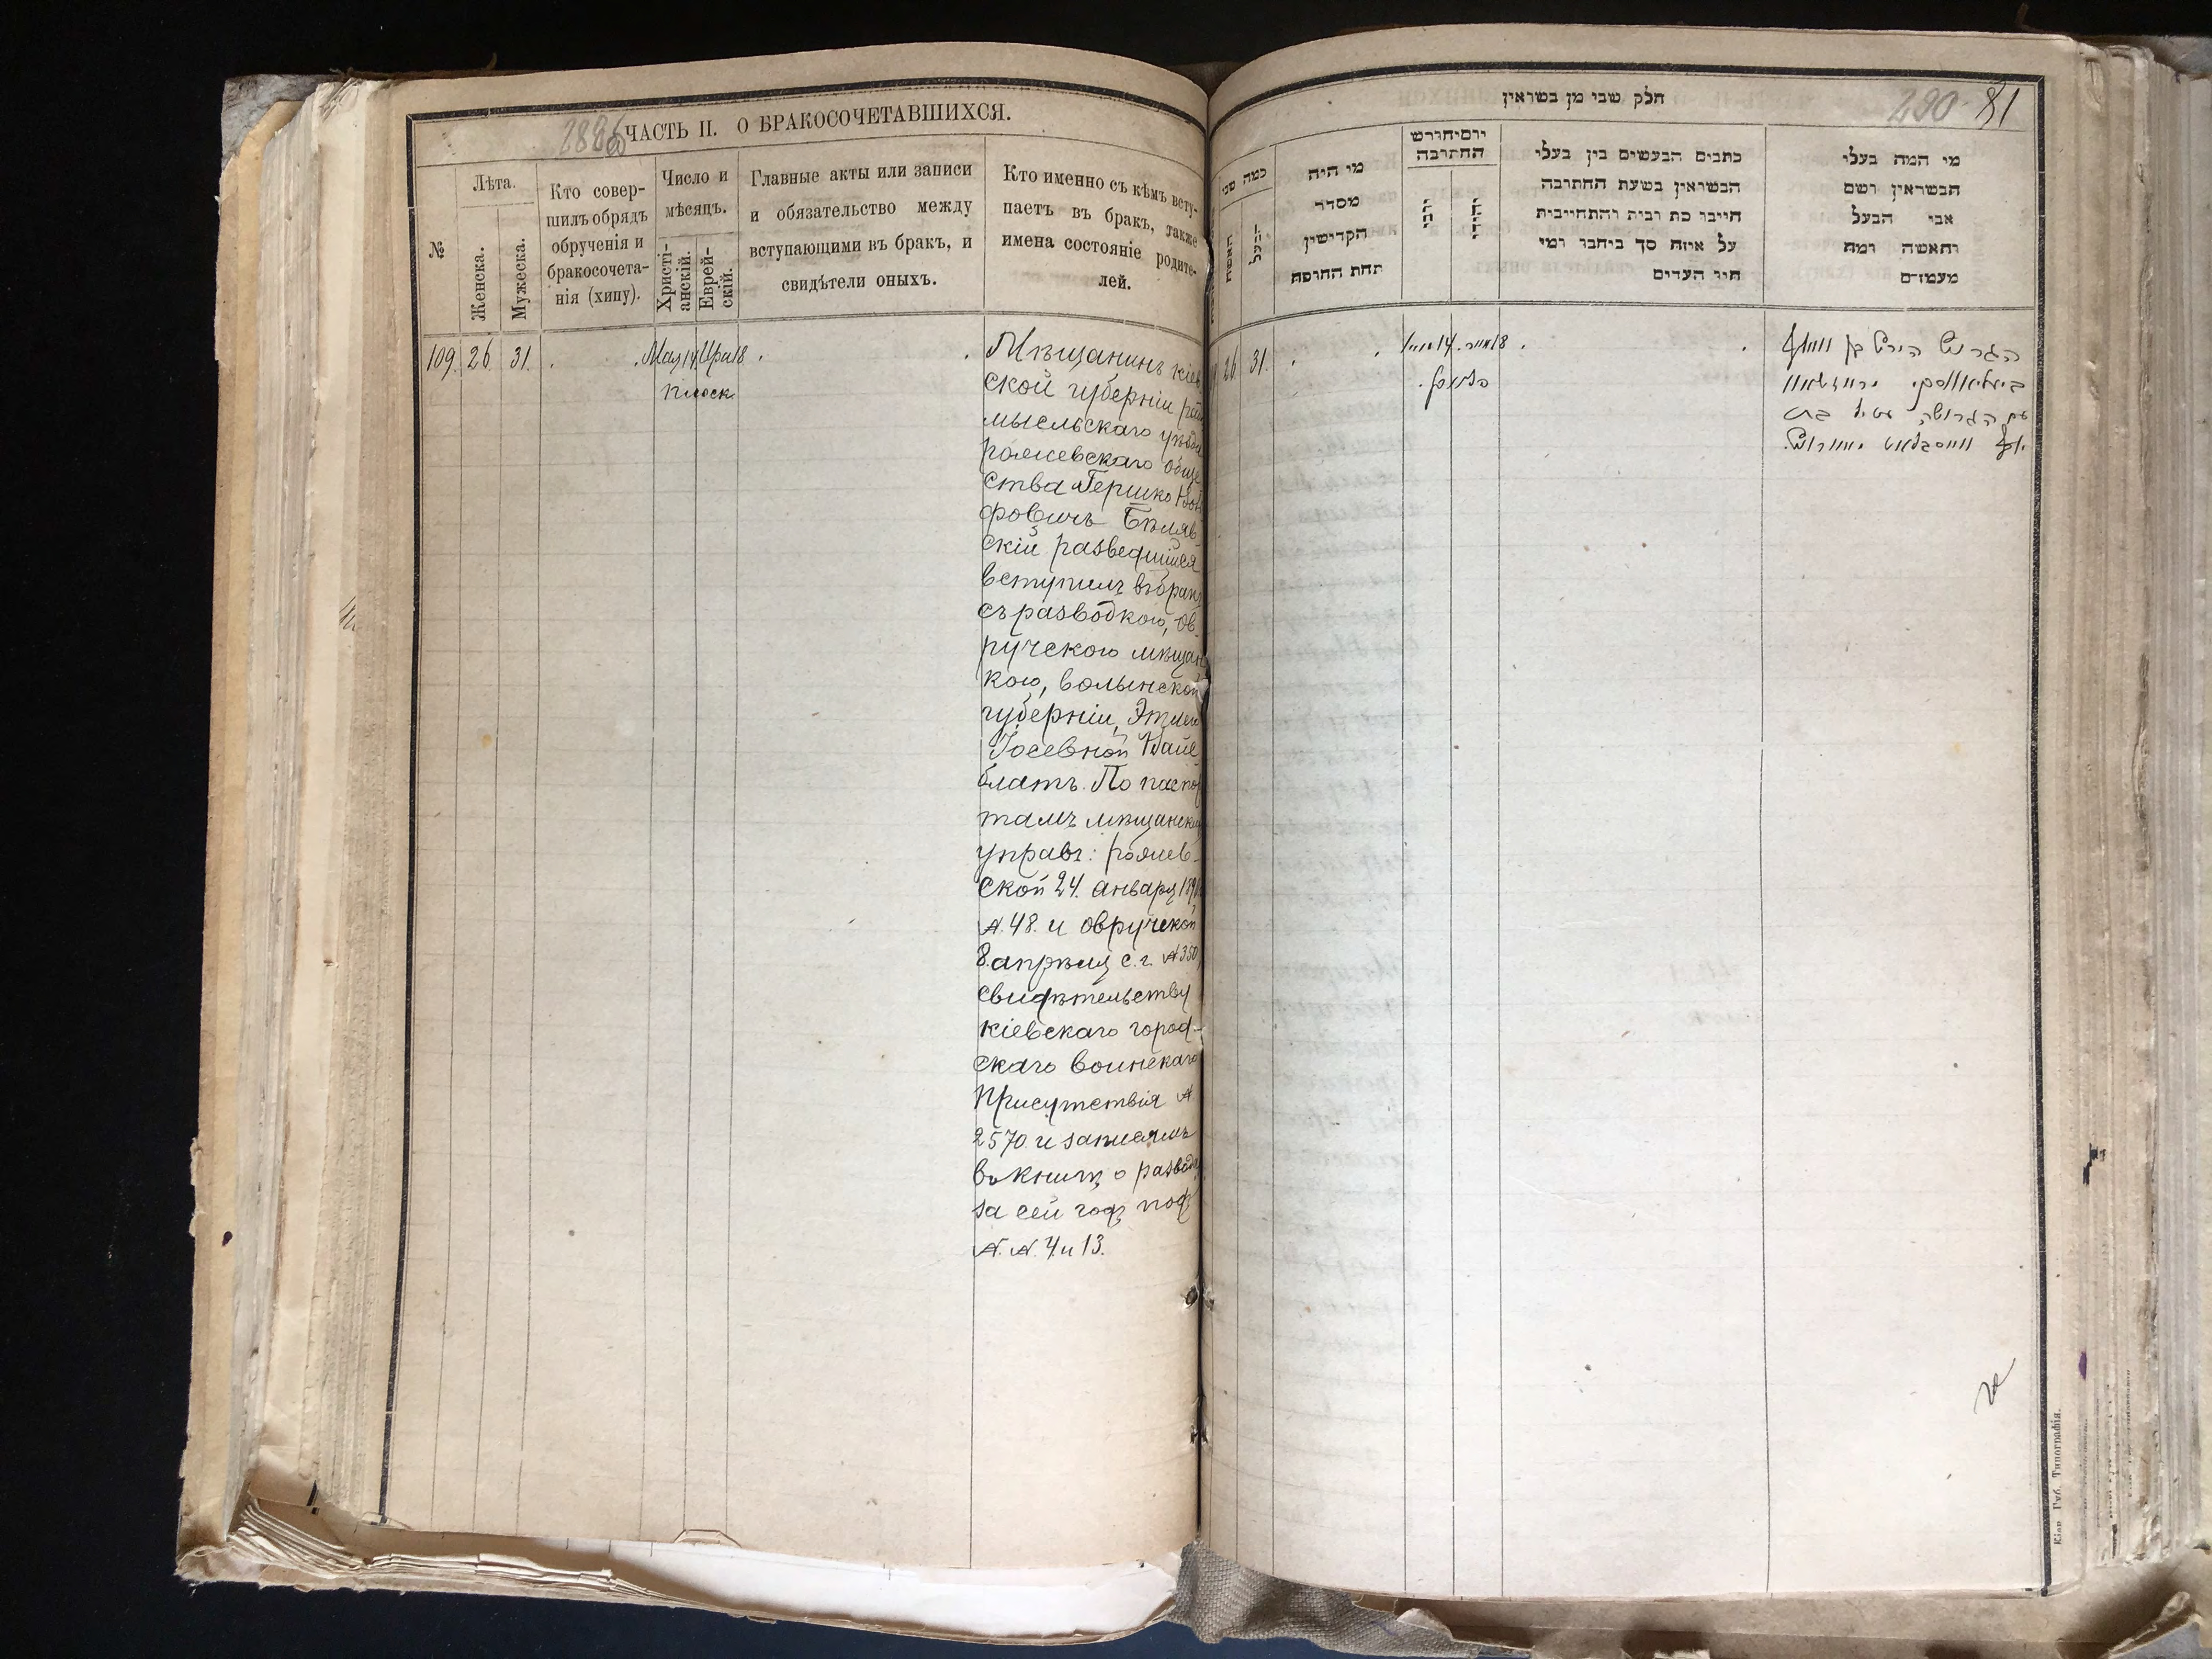 ЧАСТЬ II. О БРАКОСОЧЕТАВШИХСЯ.
№
Лѣта.
Женска.
Мужеска.
Кто совер-
шилъ обрядъ
обрученія и
бракосочета-
нія (хипу).
Число и
мѣсяцъ.
Христі-
анскій.
Еврей-
скій.
Главные акты или записи
и обязательство между
вступающими въ бракъ, и
свидѣтели оныхъ.
Кто именно съ кѣмъ всту-
паетъ въ бракъ, также
имена состояніе родите-
лей.
109. 26. 31. . . Мая 14. Ира 18 . .
Плоск
Мѣщанинъ кіев
ской губерніи радо
мысльскаго уѣзда
рожевскаго обще
ства Гершко Воль
фовичъ Бѣляв-
скій разведшійся
вступилъ въ бракъ
съ разводкою, ов-
ручскою мѣщан
кою, волынской
губерніи, Этлею
Іосевной Вайс
блатъ. По паспор
тамъ мѣщанских
управъ: рожев-
ской 24. января 189
№ 48. и овручской
8 апрѣля с. г. № 350,
свидѣтельству
кіевскаго город-
скаго воинскаго
Присутствія №
2570. и записямъ
въ книгѣ о разводѣ
за сей годъ подъ
№. №. 4 и 13.
חלק שבי מן בשראין
290 81
כמה
האשה
הבעל
מי היה
מסדר
הקדישין
תחת החופה
יום וחודש
החתובה
כתבים הבעשים בין בעלי
הבשראין בשעת החתובה
חייבו כת רבית והתחייבית
על איזה סך ביחבו ומי
חיו העדים
מי המה בעלי
הבשראין ושם
אבי הבעל
והאשה ומה
מעמדם
26. 31. . . 14 מאי 18 אייר . .
פלאסק.
הגרוש הירש בן וואלף
ביעליאווסקי
עם הגרושה עטיל בת
יוסף ווייסבלאט
Кіев. Губ. Типографія.